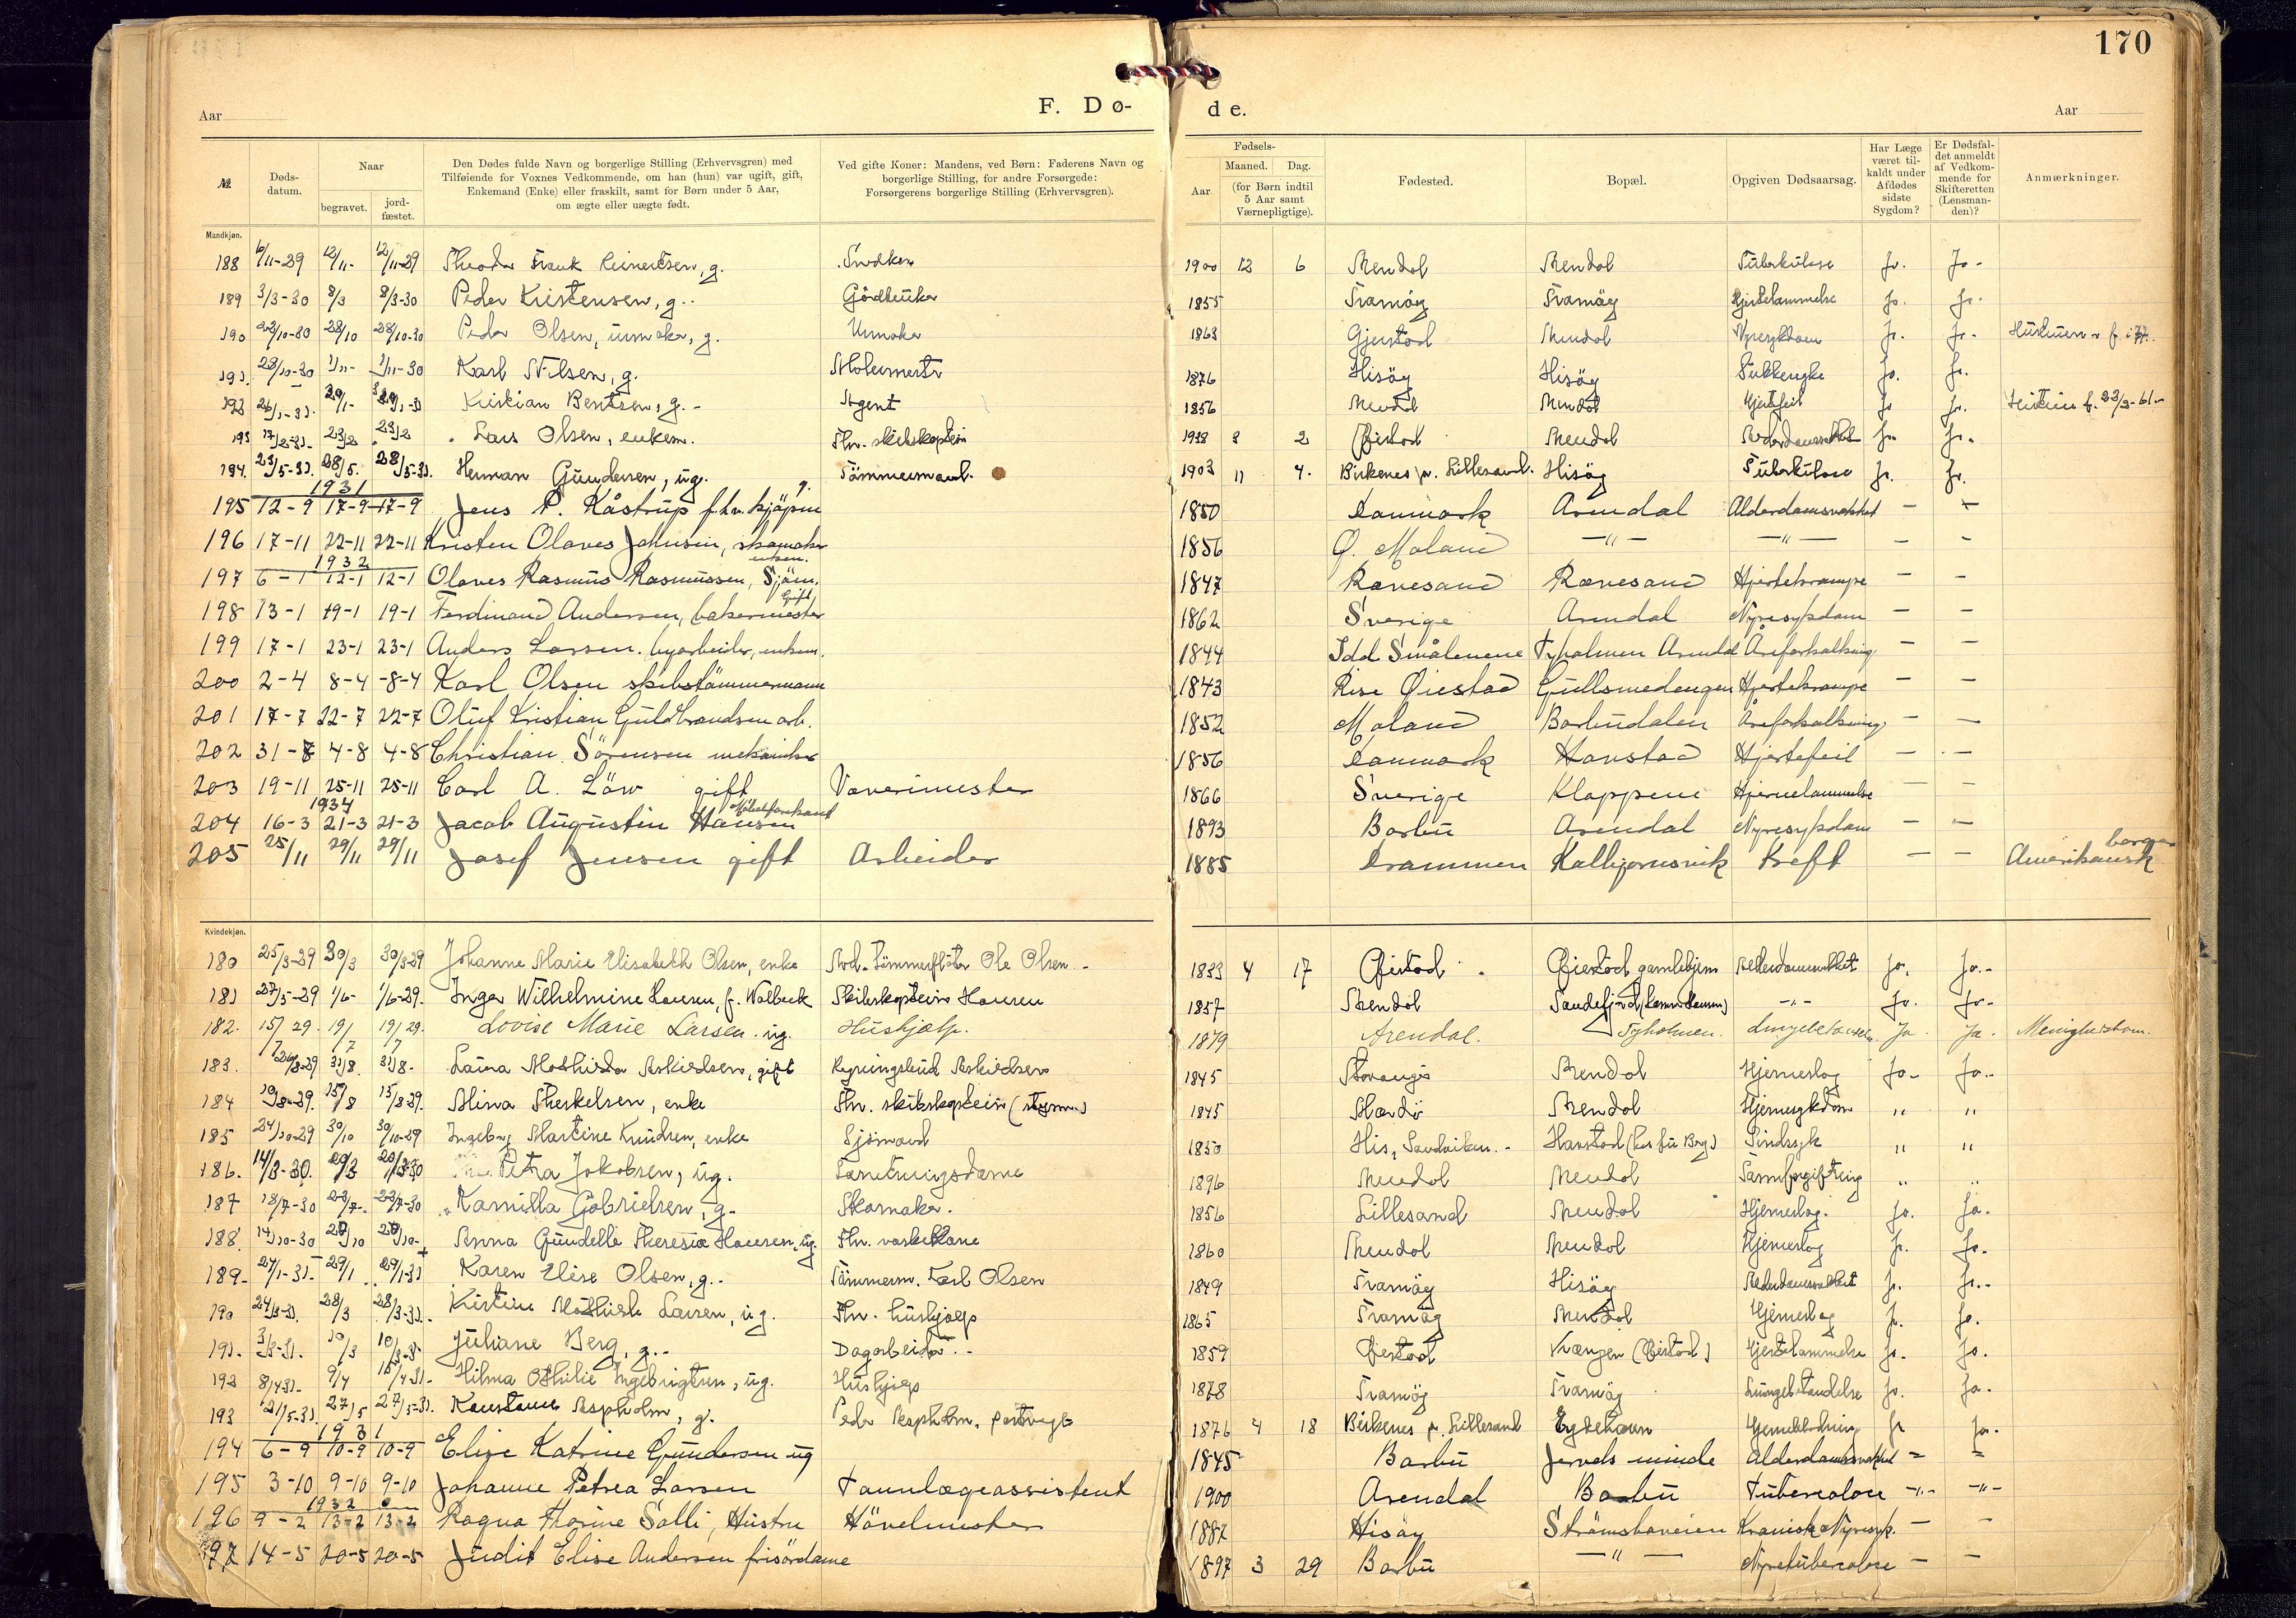 170
Aar
F. Dø-
de.
Aar
№
Døds-datum.
Naar
begravet.
jord-fæstet.
Den Dødes fulde Navn og borgerlige Stilling (Erhvervsgren) med
Tilføiende for Voxnes Vedkommende, om han (hun) var ugift, gift,
Enkemand (Enke) eller fraskilt, samt for Børn under 5 Aar,
om ægte eller uægte født.
Ved gifte Koner: Mandens, ved Børn: Faderens Navn og
borgerlige Stilling, for andre Forsørgede:
Forsørgerens borgerlige Stilling (Erhvervsgren).
Fødsels-
Aar.
Maaned.
Dag.
(for Børn indtil
5 Aar samt
Værnepligtige).
Fødested.
Bopæl.
Opgiven Dødsaarsag.
Har Læge
været til-
kaldt under
Afdødes
sidste
Sygdom?
Er Dødsfal-
det anmeldt
af Vedkom-
mende for
Skifteretten
(Lensman-
den)?
Anmærkninger.
Mandkjøn.
188 6/11-29 12/11- 12/11-29 Frank Reinertsen, g. Snedker 1900 12 6 Arendal Arendal Tuberkulose Ja. Ja-
189 3/3-30 8/3 8/3-30 Peder Kristensen, g. Gårdbruker 1855 Tromöy Tromöy Hjertelammelse Ja. Ja.
190 28/10 28/10-30 Peder Olsen, urmaker, g. Urmaker 1863 Gjerstad Arendal Nyresykdom Ja. Ja-
191. 28/10-30 1/11- 1/11-30 Karl Nilsen, g. Malermester 1876 Hisöy Hisöy Sukkersyke Ja. Ja.
192 26/1-31. 29/1- Kristian Bentsen, g.- Agent 1856 Arendal Arendal Hjertefeil Ja Ja.
193 17/2-31- 23/2 23/2 Lars Olsen, enkem. Fhv. skibskaptein 2 Øiestad Arendal Alderdomssvakhet Ja- Ja-
194. 23/5-31. 28/5. 28/5-31. Herman Gundersen, ug. Tömmermand. 1903 11 4. Birkenes pr. Lillesand. Hisöy Tuberkulose Ja. Ja.
1931
195 12-9 17-9 17-9 Jens P. Kåstrup fhv. kjöpm g. 1850 Danmark Arendal Alderdomsvakhet — —
196 17-11 22-11 22-11 Kristen Olaves Johnsen, skomaker enkem. 1856 Ø. Moland —"— —"— — -
1932
197 6-1 12-1 12-1 Olaves Rasmus Rasmussen, Sjöm. 1847 Rævesand Rævesand Hjertekrampe — —
198 13-1 19-1 19-1 Ferdinand Andersen, bakermester Gift 1862 Sverige Arendal Nyresykdom — —
199 17-1 23-1 23-1 Anders Larsen. byarbeider, enkem. 1844 Idd Smålenene Tyholmen Arendal Åreforkalkning — —
200 2-4 8-4 -8-4 Karl Olsen skibstömmermann 1843 Rise Øiestad Gullsmedengen Hjertekrampe — —
201 17-7 22-7 22-7 Oluf Kristian Guldbrandsen arb. 1852 Moland Barbudalen Åreforkalkning — —
202 31-7 4-8 4-8 Christian Sörensen mekaniker 1856 Danmark Havstad Hjertefeil — —
203 19-11 25-11 25-11 Carl A. Löw gift Væverimester 1866 Sverige Kloppene Hjernelammelse — —
1934
204 16-3 21-3 21-3 Jacob Augustin Hansen 1893 Barbu Arendal Nyresykdom — —
205 25/11 29/11 29/11 Josef Jensen gift Arbeider 1885 Drammen Kolbjørnsvik Kreft — — Amerikansk borger
Kvindekjøn.
180 25/3-29 30/3 30/3-29 Johanne Marie Elisabeth Olsen, enke Avd. tömmerfløter Ole Olsen- 1833 4 17 Øiestad Øiestad gamlehjem Alderdomssvakhet Ja. Ja.-
181 27/5-29 1/6- 1/6-29. Inger Wilhelmine Hansen, f. Walbeck Skibskaptein Hansen 1857 Arendal Sandefjord -"- Ja. Ja-
182. 15/7 29. 19/7 19/7 29. Lovise Marie Larsen. ug. Hushjælp. 1879 Arendal. Tyholmen. Ja Ja.
183. 26/8-29 31/8. 31/8- Laura Mathilda Askildsen, gift Rgningsbud Askildsen 1845 Stavanger Arendal Hjerneslag Ja- Ja.-
184 10/8-29. 15/8 15/8-29. Alina Therkelsen, enke Fhv. skibskaptein 1845 Mærdö Arendal Hjernesykdom " "
185 24/10-29 30/10 30/10-29 Ingeborg Martine Knudsen, enke Sjömand 1850 His, Sandviken.- Havstad (hos fru Berg) Sindssyk " "
186. 14/3-30. 20/3 20/3-30 Petra Jakobsen, ug. Forretningsdame 1896 Arendal Arendal Tarmforgiftning " "
187 18/7-30 23/7-. 23/7-30 Kamilla Gabrielsen, g- Skomaker. 1856 Lillesand Arendal Hjerneslag. Ja. Ja.
188. 14/10-30 20/10 20/10- Anna Gundelle Theresia Hansen, ug. Fhv. vaskekone 1860 Arendal Arendal Hjerneslag Ja. Ja-
189- 24/1-31- 29/1 29/1-31 Karen Elise Olsen, g.. Tömmerm. Karl Olsen 1849 Tromöy Hisöy Alderdomssvakhet Ja. Ja.-
190 24/3-31. 28/3 28/3-31.. Kirstine Mathilde Larsen, ug. Fhv. hushjælp 1865 Tromöy Arendal Hjerneslag Ja. Ja.
191. 3/3-31. 10/3 10/3-31 Juliane Berg, g.- Dagarbeider.- 1859 Øiestad (Øiestad) Hjertelammelse Ja- Ja.
192 8/4 31- 9/4 Hilma Othilie Ingebrigtsen, ug. Hushjelp 1878 Tromöy Tromöy Lungebetændelse Ja. Ja-
193 21/5-31. 27/5 27/5-31. Konstance Aspholm, g. Peder Aspholm, 1876 4 18 Birkenes p. Lillesand Eydehavn Hjerneblødning Ja Ja.
1931
194 6-9 10-9 10-9 Elise Katrine Gundersen ug 1845 Barbu Jervels minde Alderdomssvakhet = =
195 3-10 9-10 9-10 Johanne Petrea Larsen Tannlægeassistent 1900 Arendal Barbu Tuberculose -"- -"-
1932
196 9-2 13-2 13-2 Ragna Thorine Solli, Hustru Hövelmester 1887 Hisöy Strömsboveien Kronisk Nyresyk. — —
97 14-5 20-5 20-5 Judit Elise Andersen frisördame 1897 3 29 Barbu —"— Nyretuberculose — —